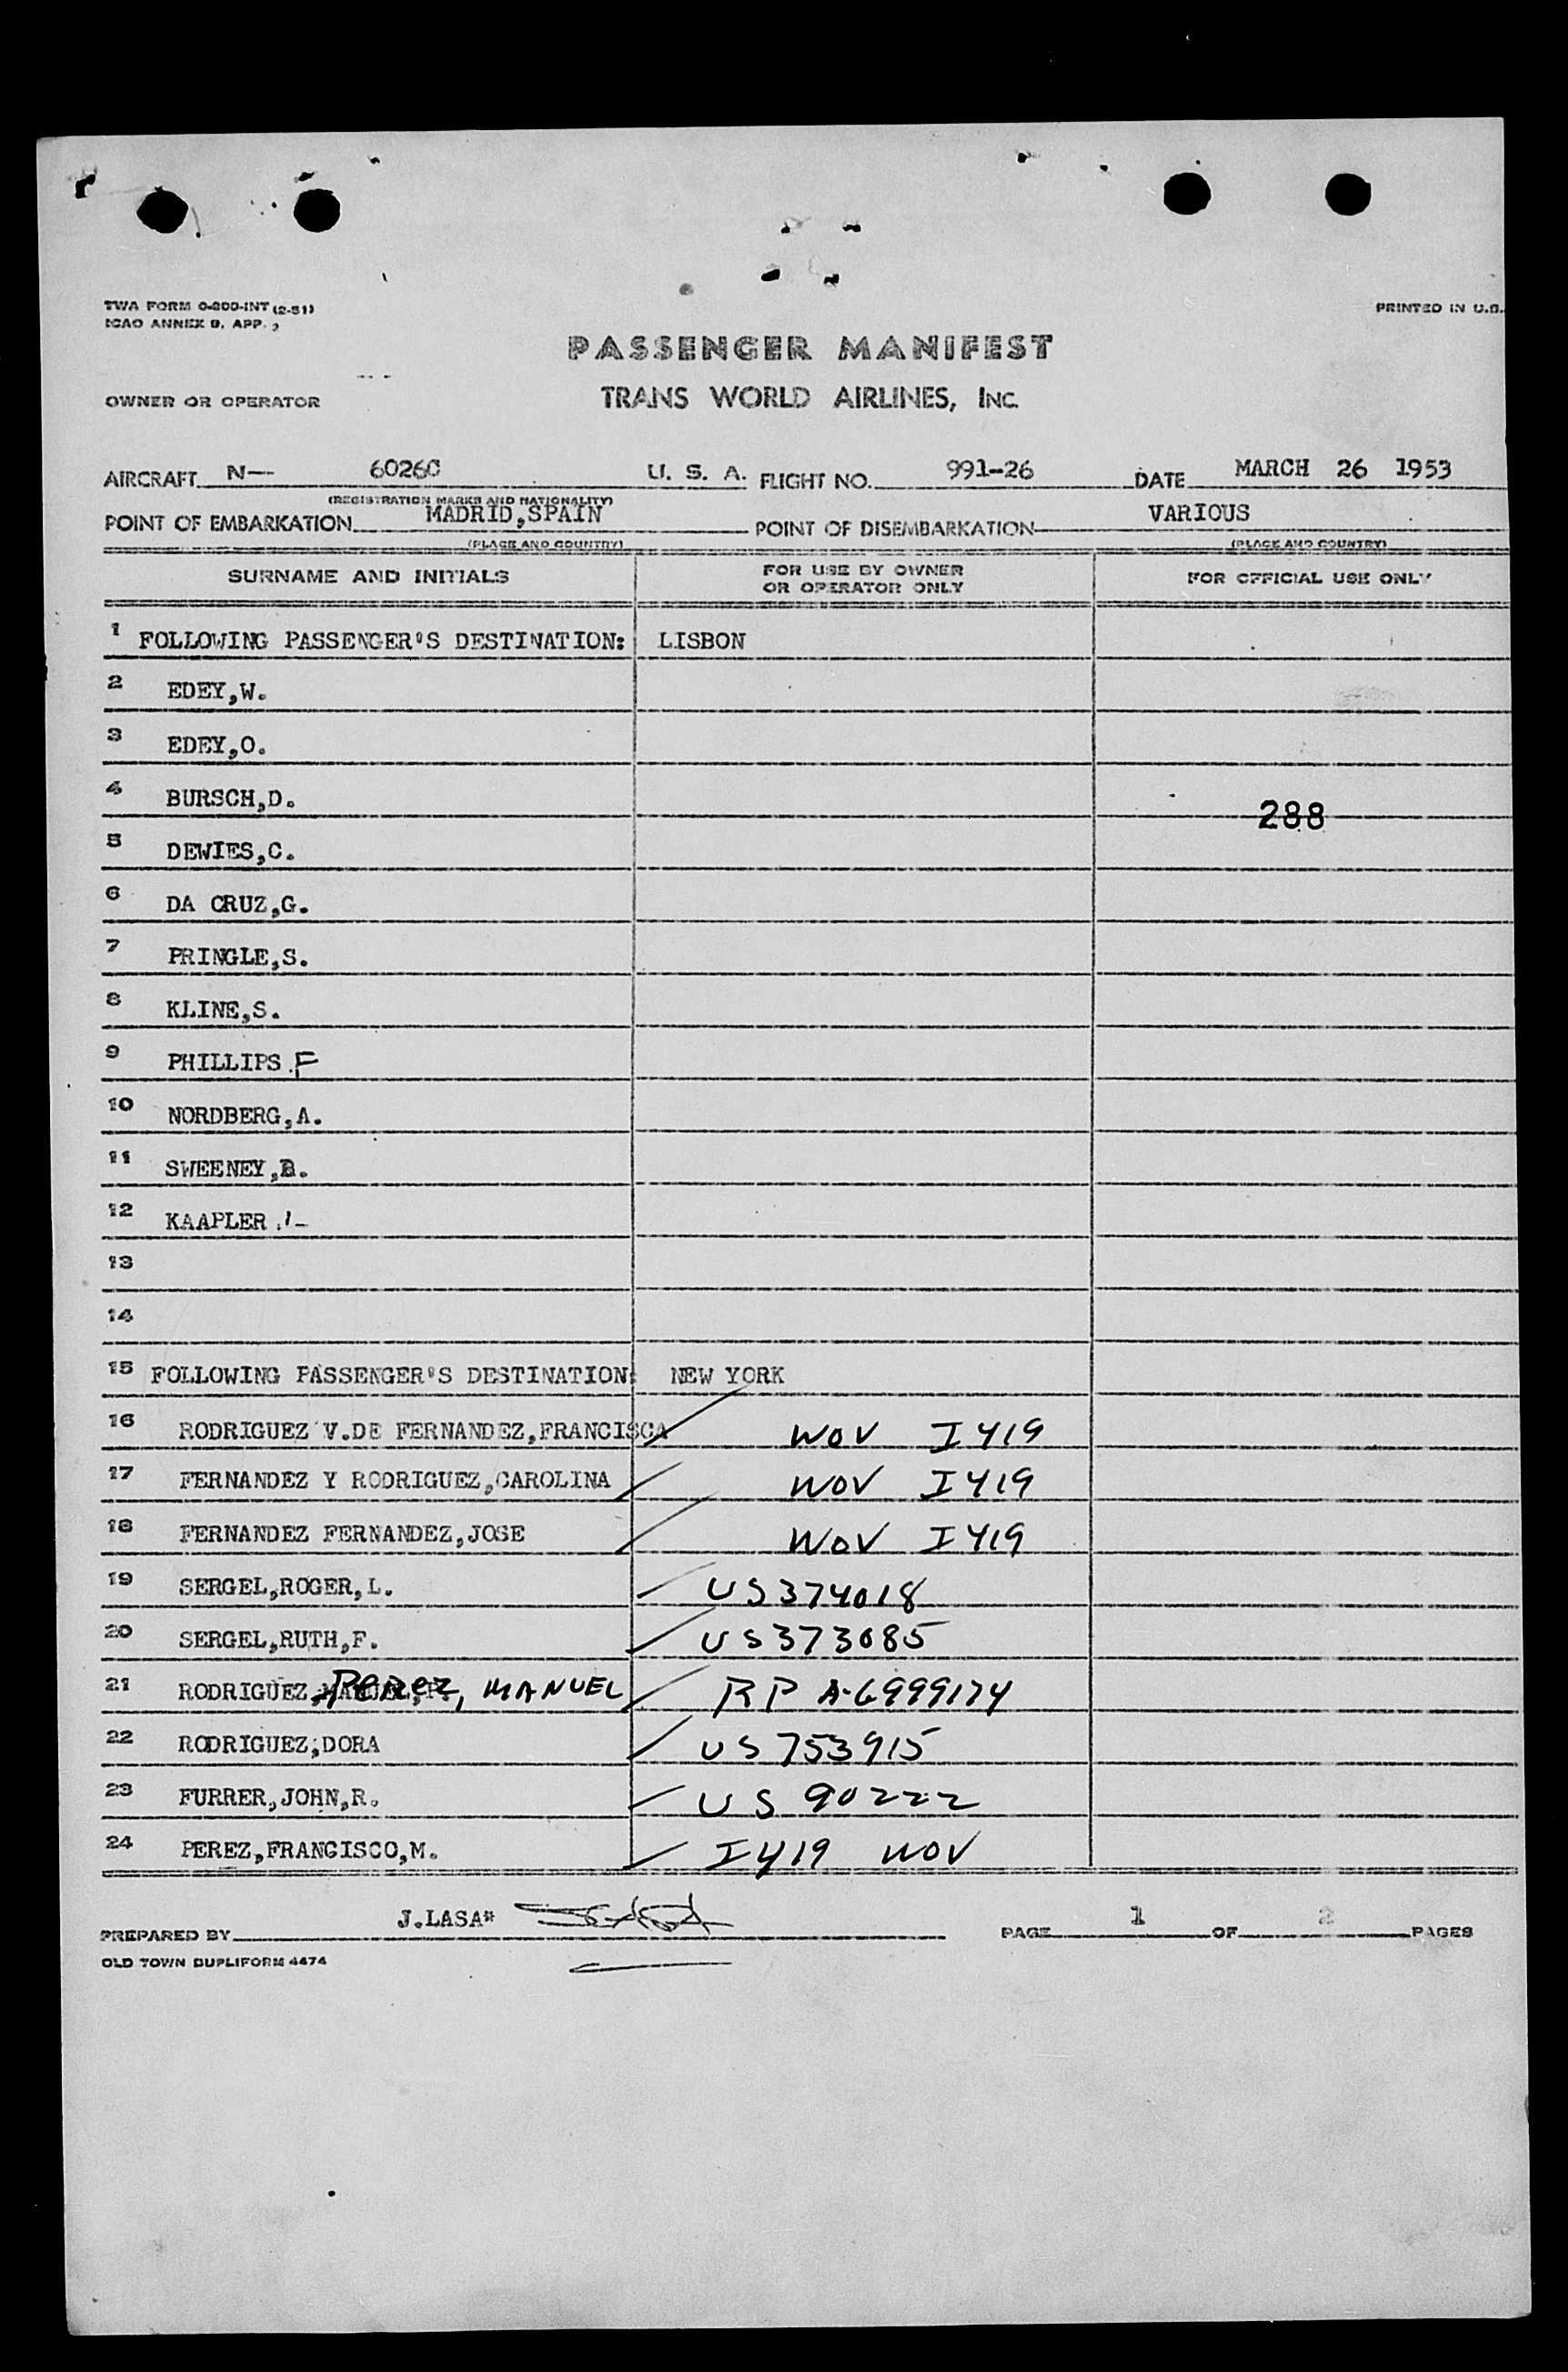 TWA FORM O-800-INT (2-51)
ICAO ANNEX 9, APP. 2
PRINTED IN U.S.
PASSENGER MANIFEST
OWNER OR OPERATOR TRANS WORLD AIRLINES, INC.
AIRCRAFT N— 6026C U. S. A. FLIGHT NO. 991-26 DATE MARCH 26 1953
(REGISTRATION MARKS AND NATIONALITY)
POINT OF EMBARKATION MADRID,SPAIN POINT OF DISEMBARKATION VARIOUS
(PLACE AND COUNTRY) (PLACE AND COUNTRY)
SURNAME AND INITIALS FOR USE BY OWNER OR OPERATOR ONLY FOR OFFICIAL USE ONLY
1 FOLLOWING PASSENGER'S DESTINATION: LISBON
2 EDEY,W.
3 EDEY,O.
4 BURSCH,D.
288
5 DEWIES,C.
6 DA CRUZ,G.
7 PRINGLE,S.
8 KLINE,S.
9 PHILLIPS F
10 NORDBERG,A.
11 SWEENEY,B.
12 KAAPLER
13
14
15 FOLLOWING PASSENGER'S DESTINATION: NEW YORK
16 RODRIGUEZ V.DE FERNANDEZ,FRANCISCA WOV I 419
17 FERNANDEZ Y RODRIGUEZ,CAROLINA WOV I 419
18 FERNANDEZ FERNANDEZ,JOSE WOV I 419
19 SERGEL,ROGER,L. US 374018
20 SERGEL,RUTH,F. US 373085
21 RODRIGUEZ PEREZ, MANUEL RP A-6999174
22 RODRIGUEZ,DORA US 753915
23 FURRER,JOHN,R. US 90222
24 PEREZ,FRANCISCO,M. I 419 WOV
PREPARED BY J.LASA" PAGE 1 OF 2 PAGES
OLD TOWN DUPLIFORM 4474